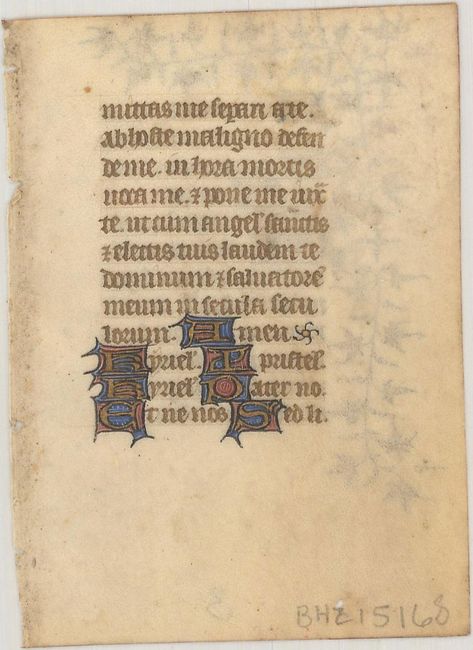 mittas me separi a te.
ab hoste maligno defen
de me. in hora mortis
uoca me. ⁊ pone me iux̄
te. ut cum angel' sanctis
⁊ electis tuis laudem te
dominum ⁊ saluatorē
meum in secula secu
lorum. Amen
Kyriel'. Xpristel'.
Kyriel' Pater no.
Et ne nos Sed li.
BHZ15168